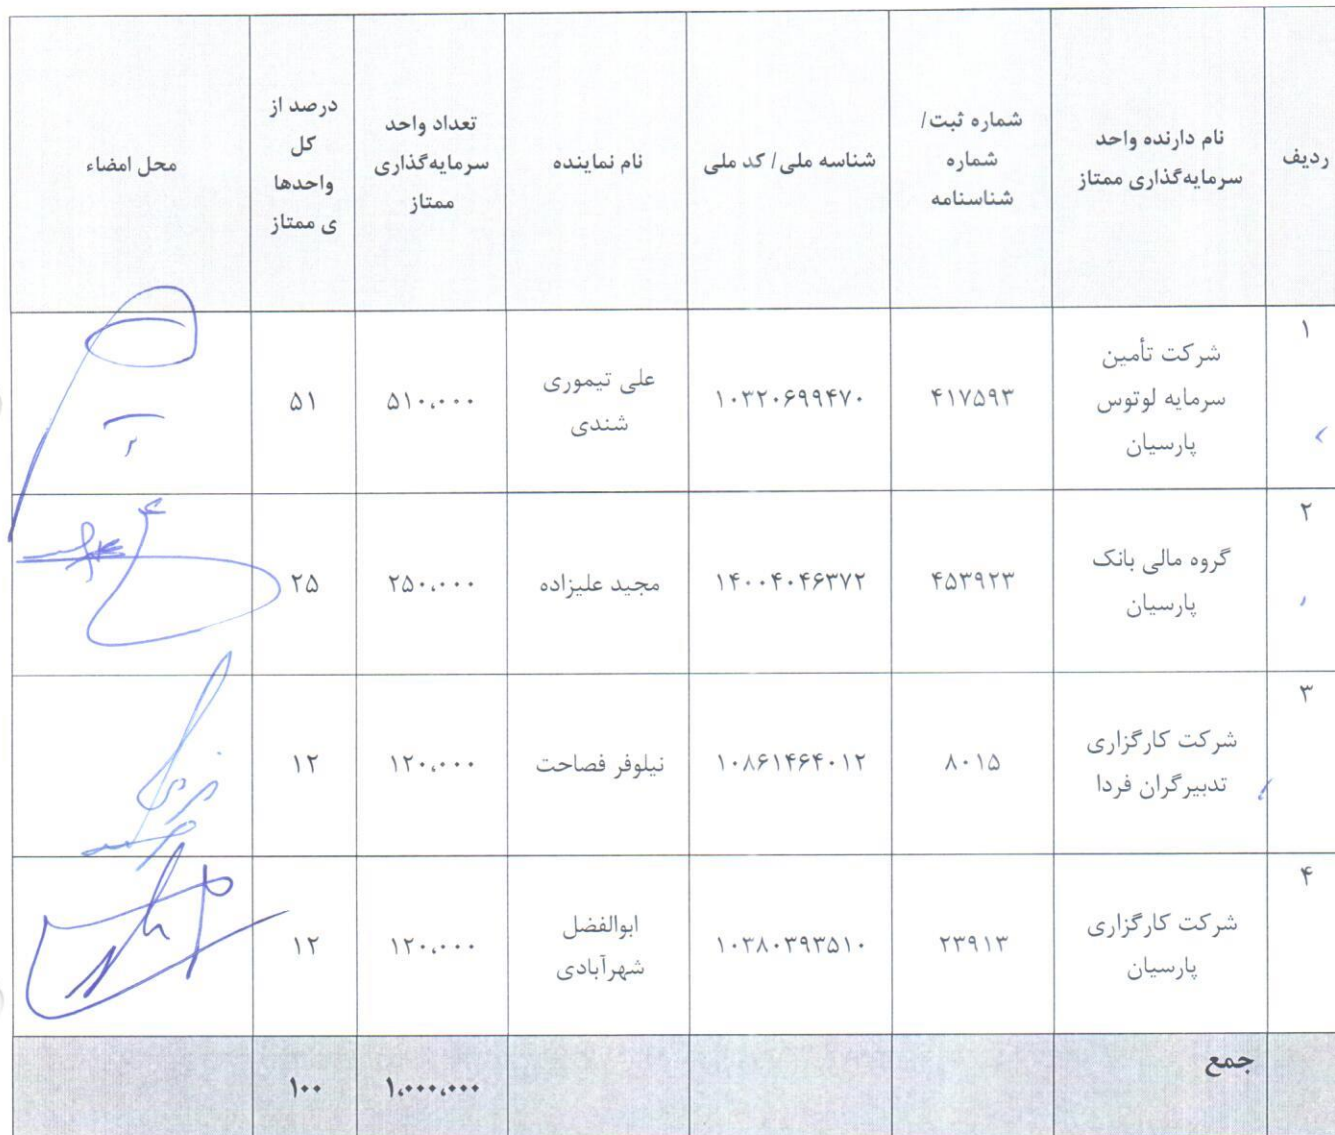 ردیف
نام دارنده واحد
سرمایه‌گذاری ممتاز
شماره ثبت/
شماره
شناسنامه
شناسه ملی/ کد ملی
نام نماینده
تعداد واحد
سرمایه‌گذاری
ممتاز
درصد از
کل
واحدها
ی ممتاز
محل امضاء
۱
شرکت تأمین
سرمایه لوتوس
پارسیان
۴۱۷۵۹۳
۱۰۳۲۰۶۹۹۴۷۰
علی تیموری
شندی
۵۱۰،۰۰۰
۵۱
۲
گروه مالی بانک
پارسیان
۴۵۳۹۲۳
۱۴۰۰۴۰۴۶۳۷۲
مجید علیزاده
۲۵۰،۰۰۰
۲۵
۳
شرکت کارگزاری
تدبیرگران فردا
۸۰۱۵
۱۰۸۶۱۴۶۴۰۱۲
نیلوفر فصاحت
۱۲۰،۰۰۰
۱۲
۴
شرکت کارگزاری
پارسیان
۲۳۹۱۳
۱۰۳۸۰۳۹۳۵۱۰
ابوالفضل
شهرآبادی
۱۲۰،۰۰۰
۱۲
جمع
۱،۰۰۰،۰۰۰
۱۰۰